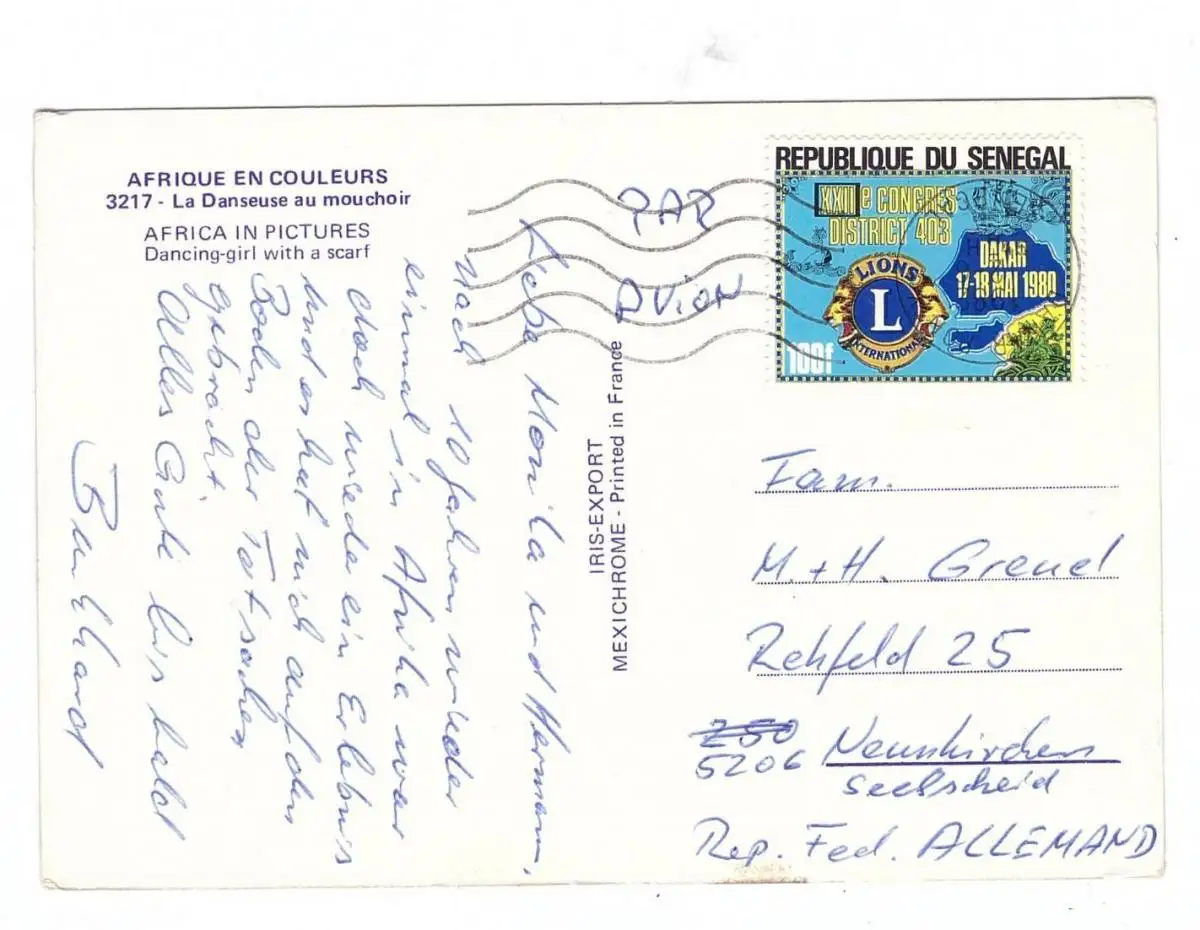 AFRIQUE EN COULEURS
3217 - La Danseuse au mouchoir
AFRICA IN PICTURES
Dancing-girl with a scarf
Liebe Monika und Hermann,
nach 10 Jahren wieder
einmal in Afrika war
doch wieder ein Erlebnis
und es hat mich auf den
Boden der Tatsachen
gebracht.
Alles Gute bis bald
IRIS-EXPORT
MEXICHROME - Printed in France
PAR
AVION
REPUBLIQUE DU SENEGAL
XXIIe CONGRES
DISTRICT 403
DAKAR
17-18 MAI 1980
LIONS
L
INTERNATIONAL
100f
Fam.
M. + H. Greuel
Rehfeld 25
250
5206 Neunkirchen
Seelscheid
Rep. Fed. ALLEMAND